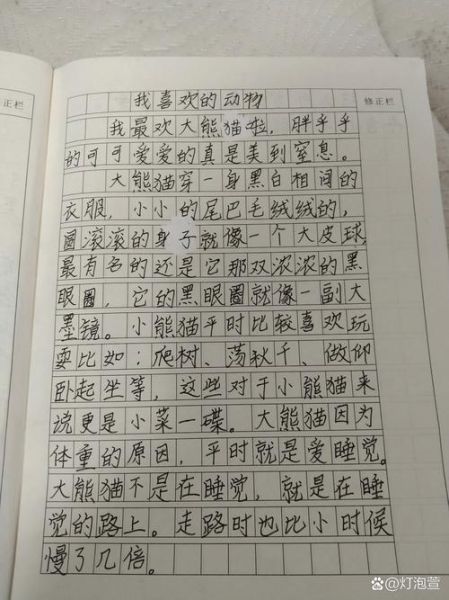 正栏
修正栏
我喜欢的动物
我最欢大熊猫啦，胖乎乎
的可可爱爱的真是美到窒息。
大熊猫穿一身黑白相间的
衣服，小小的尾巴毛绒绒的，
圆滚滚的身子就像一个大皮球，
最有名的还是它那双浓浓的黑
眼圈，它的黑眼圈就像一副大
墨镜。小熊猫平时比较喜欢玩
耍比如：爬树、荡秋千、做仰
卧起坐等，这些对于小熊猫来
说更是小菜一碟。大熊猫因为
体重的原因，平时就是爱睡觉。
大熊猫不是在睡觉，就是在睡
觉的路上。走路时也比小时候
慢了几倍。
百家号@灯泡萱